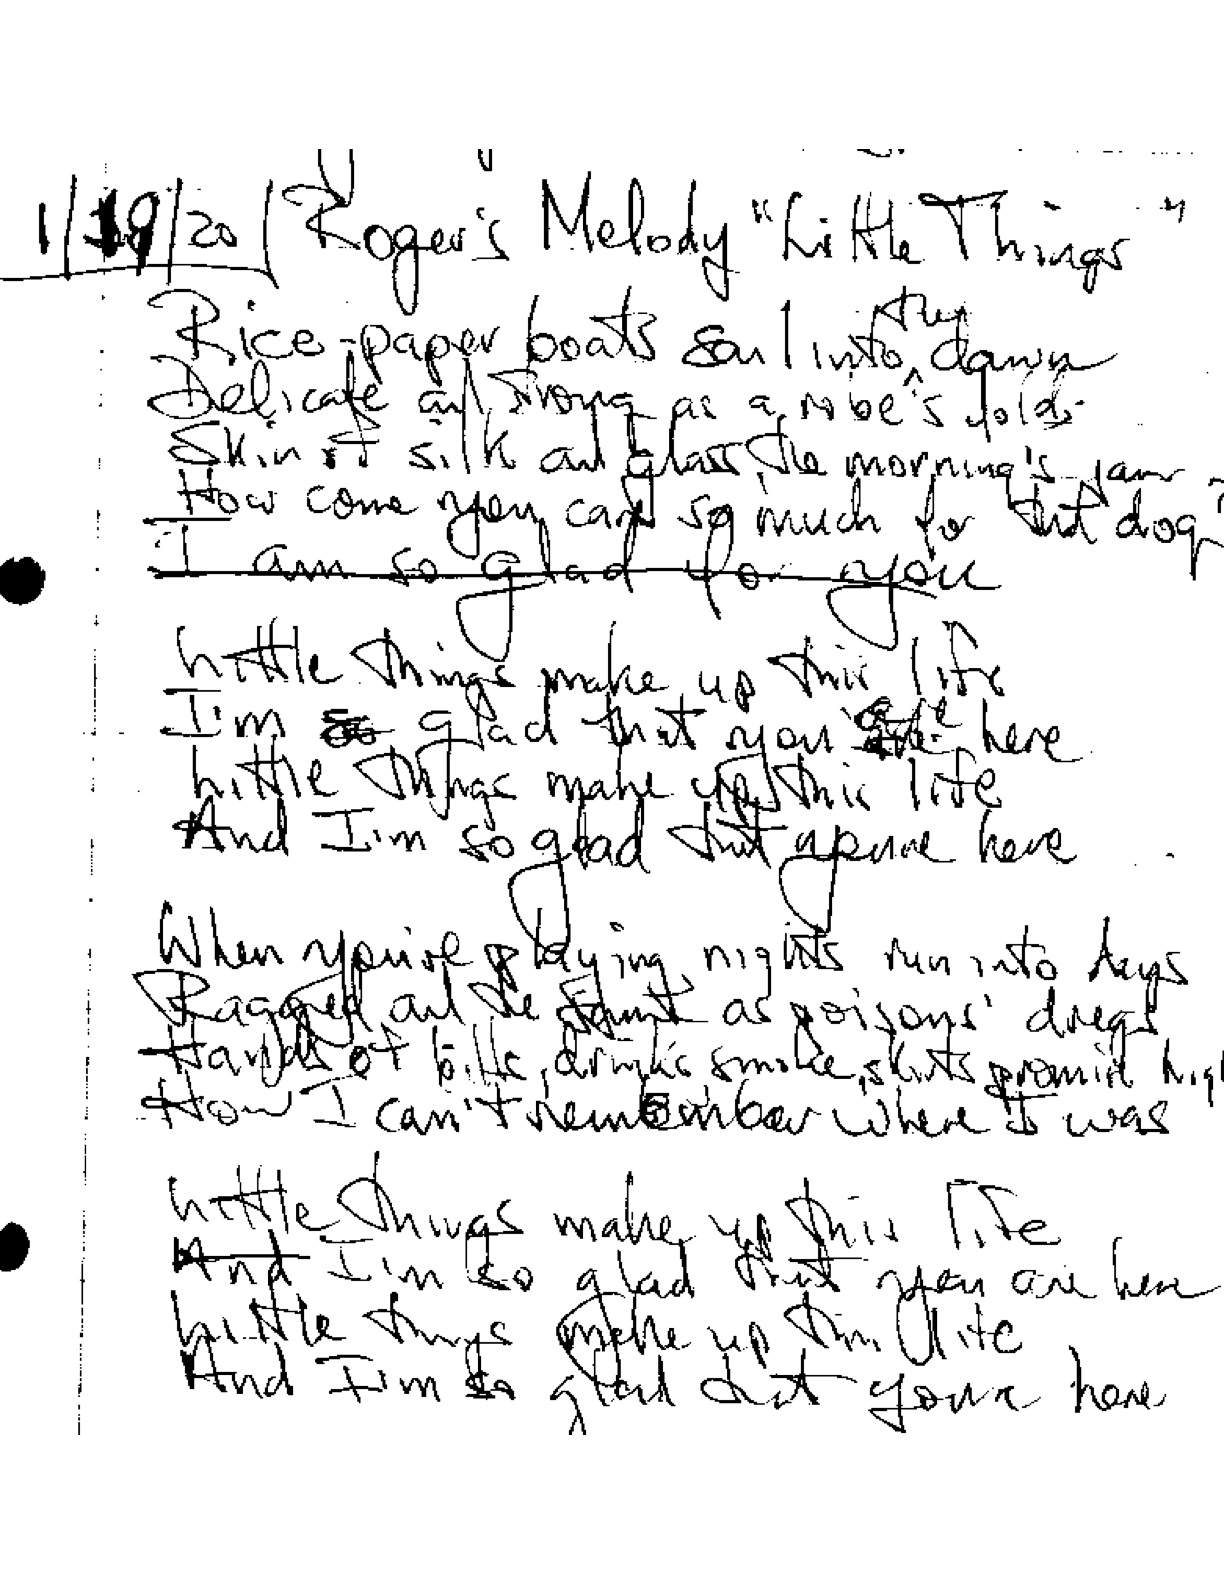 1/19/20 Roger's Melody "Little Things"
Rice-paper boats sail into the dawn
Delicate and strong as a robe's fold
Skin of silk and glass, the morning's
How come you care so much for that dog
I am so glad for you
Little things make up this life
I'm so glad that you are here
Little things make up this life
And I'm so glad that you're here
When you're playing nights run into days
Ragged and the as poisons' dregs
Hands of bills, drinks smoke, skirts
How I can't remember where I was
Little things make up this life
And I'm so glad that you are here
Little things make up this life
And I'm so glad that you're here